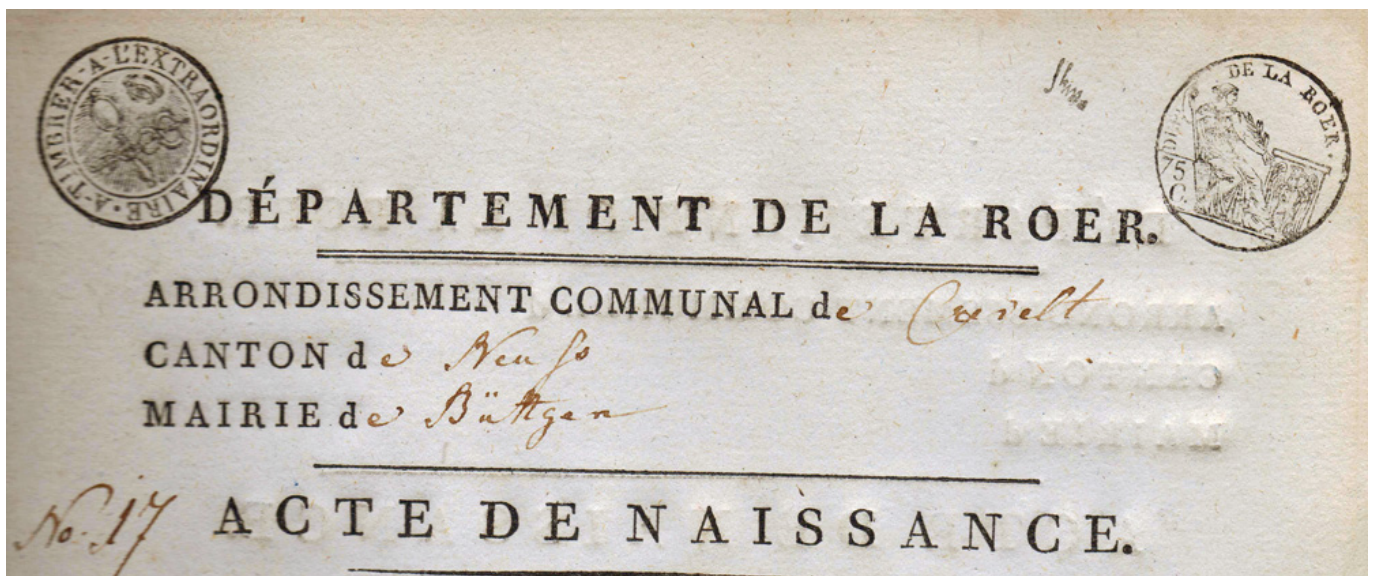 A-TIMBRER-A-L'EXTRAORDINAIRE
DE LA ROER.
75
C.
DÉPARTEMENT DE LA ROER.
ARRONDISSEMENT COMMUNAL de Crevelt
CANTON de Neuß
MAIRIE de Büttgen
No. 17 ACTE DE NAISSANCE.